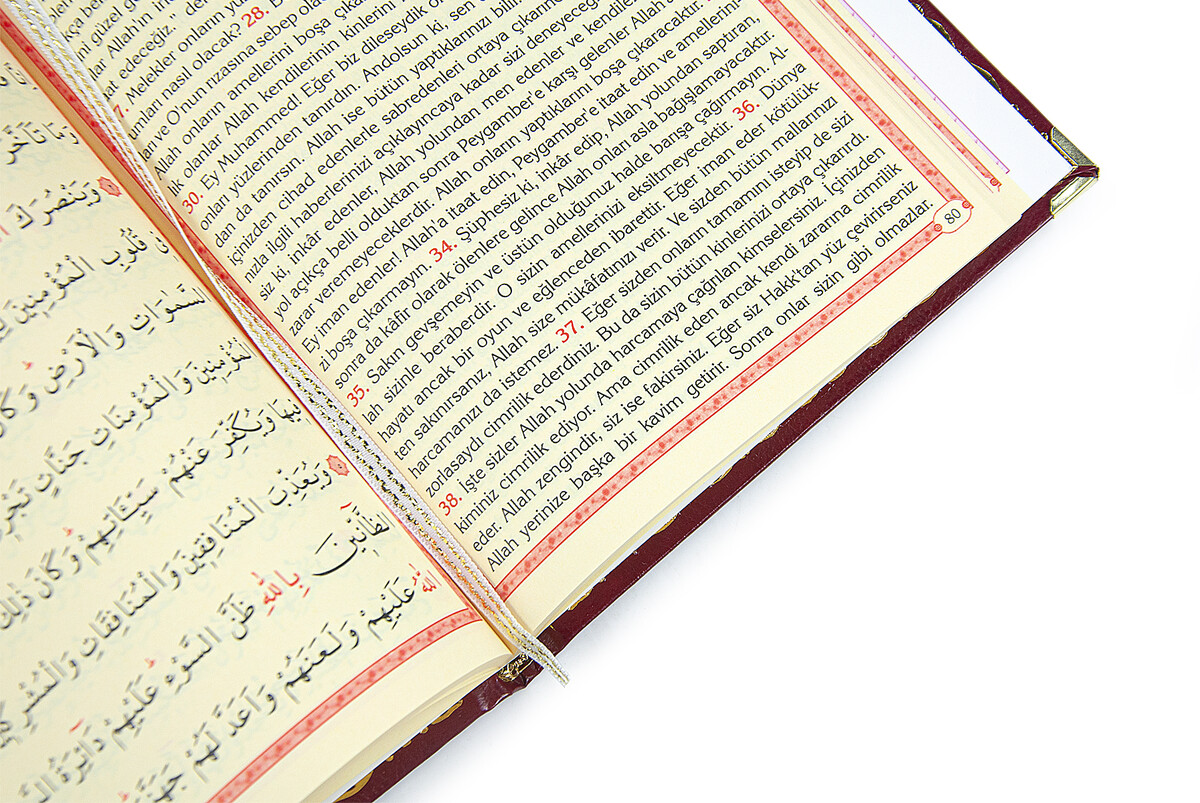 وَيَنْصُرَكَ
قُلُوبِ الْمُؤْمِنِينَ
السَّمٰوَاتِ وَالْاَرْضِ وَكَانَ
الْمُؤْمِنِينَ وَالْمُؤْمِنَاتِ جَنَّاتٍ تَجْرِي
فِيهَا وَيُكَفِّرَ عَنْهُمْ سَيِّـَٔاتِهِمْ وَكَانَ ذٰلِكَ
وَيُعَذِّبَ الْمُنَافِقِينَ وَالْمُنَافِقَاتِ وَالْمُشْرِكِينَ
الظَّٓانِّينَ بِاللّٰهِ ظَنَّ السَّوْءِ عَلَيْهِمْ دَٓائِرَةُ
اللّٰهُ عَلَيْهِمْ وَلَعَنَهُمْ وَاَعَدَّ لَهُمْ جَهَنَّمَ
ni güzel
Allah'ın
at edeceğiz.,,
Melekler onların
umları nasıl olacak? 28.
ve O'nun rızasına sebep
Allah onların amellerini boşa
lik olanlar Allah kendilerinin kinlerini
30. Ey Muhammed! Eğer biz dileseydik
onları yüzlerinden tanırdın. Andolsun ki, sen
dan da tanırsın. Allah ise bütün yaptıklarınızı
içinizden cihad edenlerle sabredenleri ortaya
nızla ilgili haberlerinizi açıklayıncaya kadar sizi
siz ki, inkâr edenler, Allah yolundan men edenler ve
yol açıkça belli olduktan sonra Peygamber'e karşı gelenler
zarar veremeyeceklerdir. Allah onların yaptıklarını boşa çıkaracaktır.
Ey iman edenler! Allah'a itaat edin, Peygamber'e itaat edin ve amellerini-
zi boşa çıkarmayın. 34. Şüphesiz ki, inkâr edip, Allah yolundan saptıran,
sonra da kâfir olarak ölenlere gelince Allah onları asla bağışlamayacaktır.
35. Sakın gevşemeyin ve üstün olduğunuz halde barışa çağırmayın. Al-
lah sizinle beraberdir. O sizin amellerinizi eksiltmeyecektir. 36. Dünya
hayatı ancak bir oyun ve eğlenceden ibarettir. Eğer iman eder kötülük-
ten sakınırsanız, Allah size mükâfatınızı verir. Ve sizden bütün mallarınızı
harcamanızı da istemez. 37. Eğer sizden onların tamamını isteyip de sizi
zorlasaydı cimrilik ederdiniz. Bu da sizin bütün kinlerinizi ortaya çıkarırdı.
38. İşte sizler Allah yolunda harcamaya çağrılan kimselersiniz. İçinizden
kiminiz cimrilik ediyor. Ama cimrilik eden ancak kendi zararına cimrilik
eder. Allah zengindir, siz ise fakirsiniz. Eğer siz Hakk'tan yüz çevirirseniz
Allah yerinize başka bir kavim getirir. Sonra onlar sizin gibi olmazlar.
80